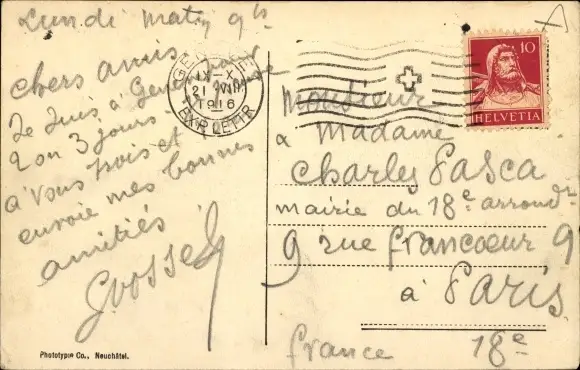 Lundi matin 9h
chers amis
Je suis à Genève pour
2 ou 3 jours -
à vous trois et
envoie mes bonnes
amitiés
GENÈVE
IX-X
21 VIII
1916
EXP. LETTR.
10
HELVETIA
Monsieur
à Madame
Charles Pasca
mairie du 18e arrondt
9 rue francoeur 9
à Paris
france 18e
Phototypie Co., Neuchâtel.